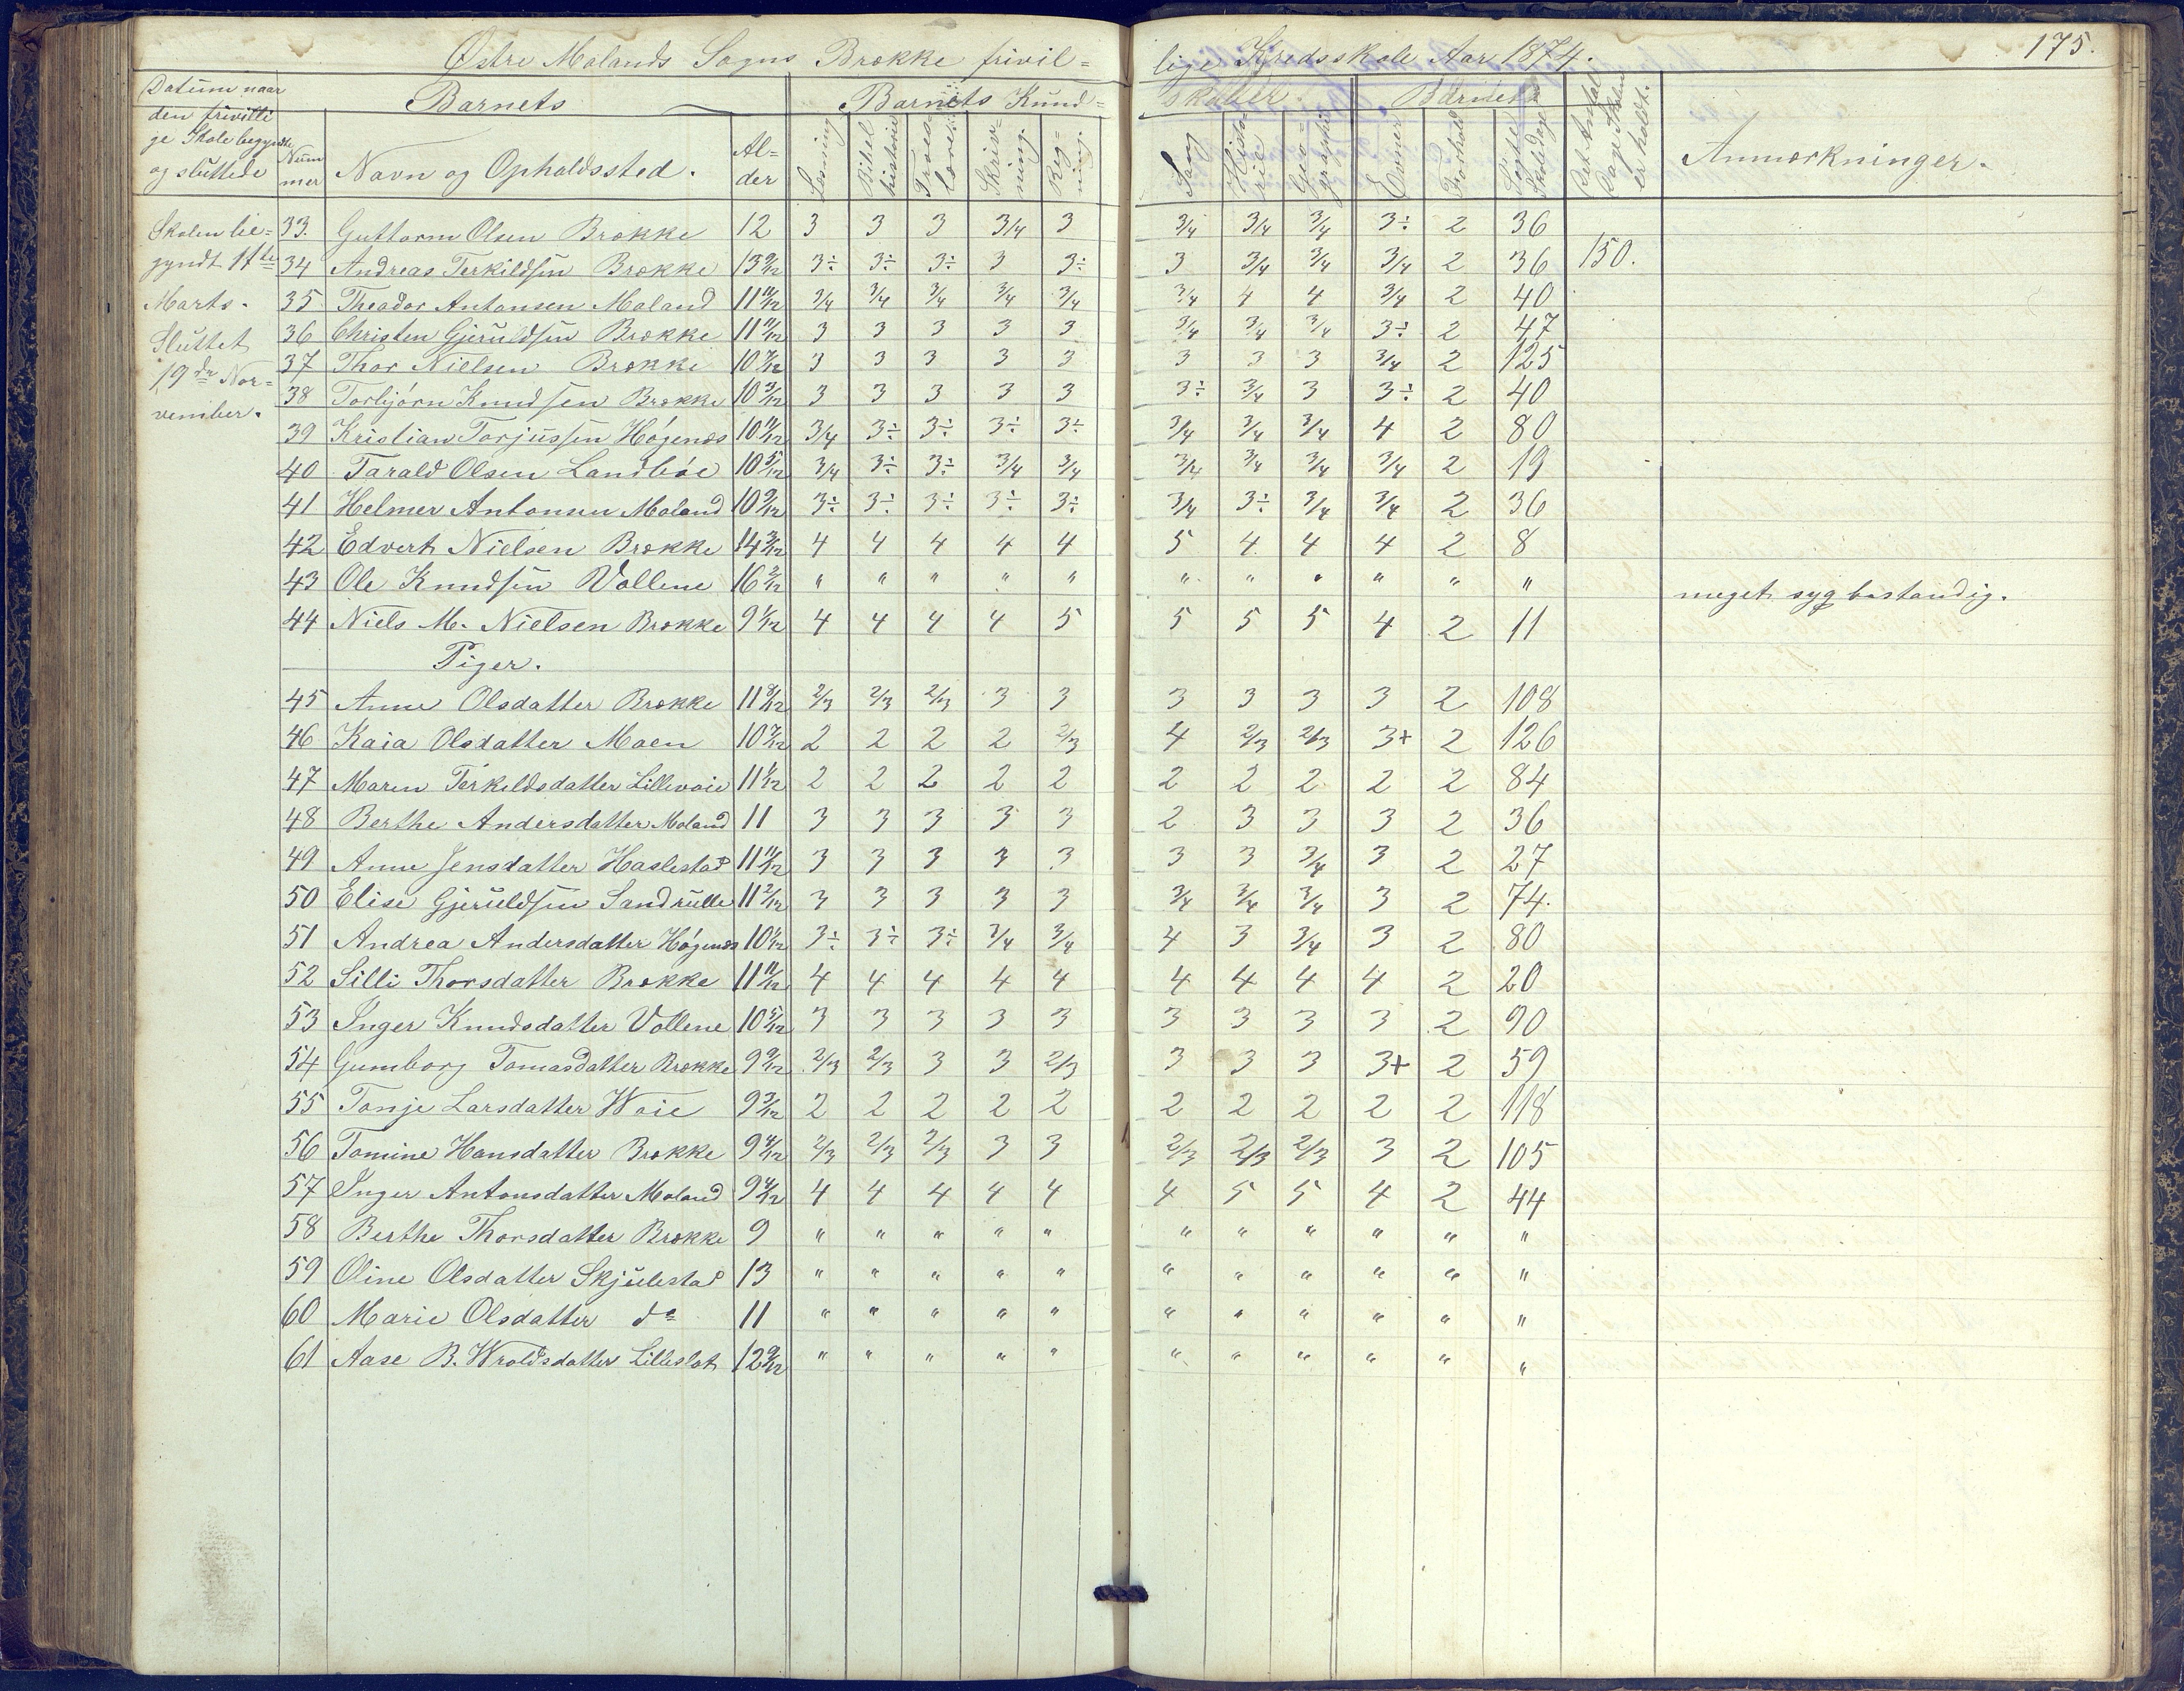 175.
Østre Molands Sogns Brække frivil= lige Kredsskole Aar 1874.
Datum naar den frivilli ge Skole begyndte og sluttede
Barnets
Barnets Kund= skaber.
Barnets
Num mer
Navn og Opholdssted.
Al= der
Læsning
Bibel historie
Troes= lære
Skriv= ning.
Reg= ning.
Sang
Histo= rie
Geo= graphi
Evner
Forhold
Søgte Skoledage
Det Antal Dage Skolen er holdt.
Anmærkninger.
Skolen be= gyndt 11te Marts.
Sluttet 19de No= vember.
33. Guttorm Olsen Brække 12 3 3 3 3/4 3 3/4 3/4 3/4 3÷ 2 36
34 Andreas Terkildsen Brække 13 9/12 3÷ 3÷ 3÷ 3 3÷ 3 3/4 3/4 3/4 2 36 150.
35 Theodor Antonsen Moland 11 11/12 3/4 3/4 3/4 3/4 3/4 3/4 4 4 3/4 2 40
36 Christen Gjeruldsen Brække 11 11/12 3 3 3 3 3 3/4 3/4 3/4 3÷ 2 47
37 Thor Nielsen Brække 10 7/12 3 3 3 3 3 3 3 3 3/4 2 125
38 Torbjørn Knudsen Brække 10 3/12 3 3 3 3 3 3÷ 3/4 3 3÷ 2 40
39 Kristian Torjussen Høgenæs 10 11/12 3/4 3÷ 3÷ 3÷ 3÷ 3/4 3/4 3/4 4 2 80
40 Tarald Olsen Landbøe 10 5/12 3/4 3÷ 3÷ 3/4 3/4 3/4 3/4 3/4 3/4 2 19
41 Helmer Antonsen Moland 10 9/12 3÷ 3÷ 3÷ 3÷ 3÷ 3/4 3÷ 3/4 3/4 2 36
42 Edvert Nielsen Brække 14 3/12 4 4 4 4 4 5 4 4 4 2 8
43 Ole Knudsen Vollene 16 2/12 " " " " " " " " " " " meget syg bestandig.
44 Niels M. Nielsen Brække 9 1/12 4 4 4 4 5 5 5 5 4 2 11
Piger.
45 Anne Olsdatter Brække 11 8/12 2/3 2/3 2/3 3 3 3 3 3 3 2 108
46 Kaia Olsdatter Moen 10 7/12 2 2 2 2 2/3 4 2/3 2/3 3+ 2 126
47 Maren Terkildsdatter Lillevoie 11 1/12 2 2 2 2 2 2 2 2 2 2 84
48 Berthe Andersdatter Moland 11 3 3 3 3 3 2 3 3 3 2 36
49 Anne Jensdatter Haslestad 11 11/12 3 3 3 3 3 3 3 3/4 3 2 27
50 Elise Gjeruldsen Sandrulle 11 2/12 3 3 3 3 3 3/4 3/4 3/4 3 2 74.
51 Andrea Andersdatter Høgenæs 10 1/12 3÷ 3÷ 3÷ 3/4 3/4 4 3 3/4 3 2 80
52 Silli Thorsdatter Brække 11 11/12 4 4 4 4 4 4 4 4 4 2 20
53 Inger Knudsdatter Vollene 10 5/12 3 3 3 3 3 3 3 3 3 2 90
54 Gumborg Tomasdatter Brække 9 9/12 2/3 2/3 3 3 2/3 3 3 3 3+ 2 59
55 Tonje Larsdatter Woie 9 3/12 2 2 2 2 2 2 2 2 2 2 118
56 Tomine Hansdatter Brække 9 4/12 2/3 2/3 2/3 3 3 2/3 2/3 2/3 3 2 105
57 Inger Antonsdatter Moland 9 4/12 4 4 4 4 4 4 5 5 4 2 44
58 Berthe Thorsdatter Brække 9 " " " " " " " " " " "
59 Oline Olsdatter Skjulestad 13 " " " " " " " " " " "
60 Marie Olsdatter do 11 " " " " " " " " " " "
61 Aase B. Wroldsdatter Lilleslot 12 9/12 " " " " " " " " " " "